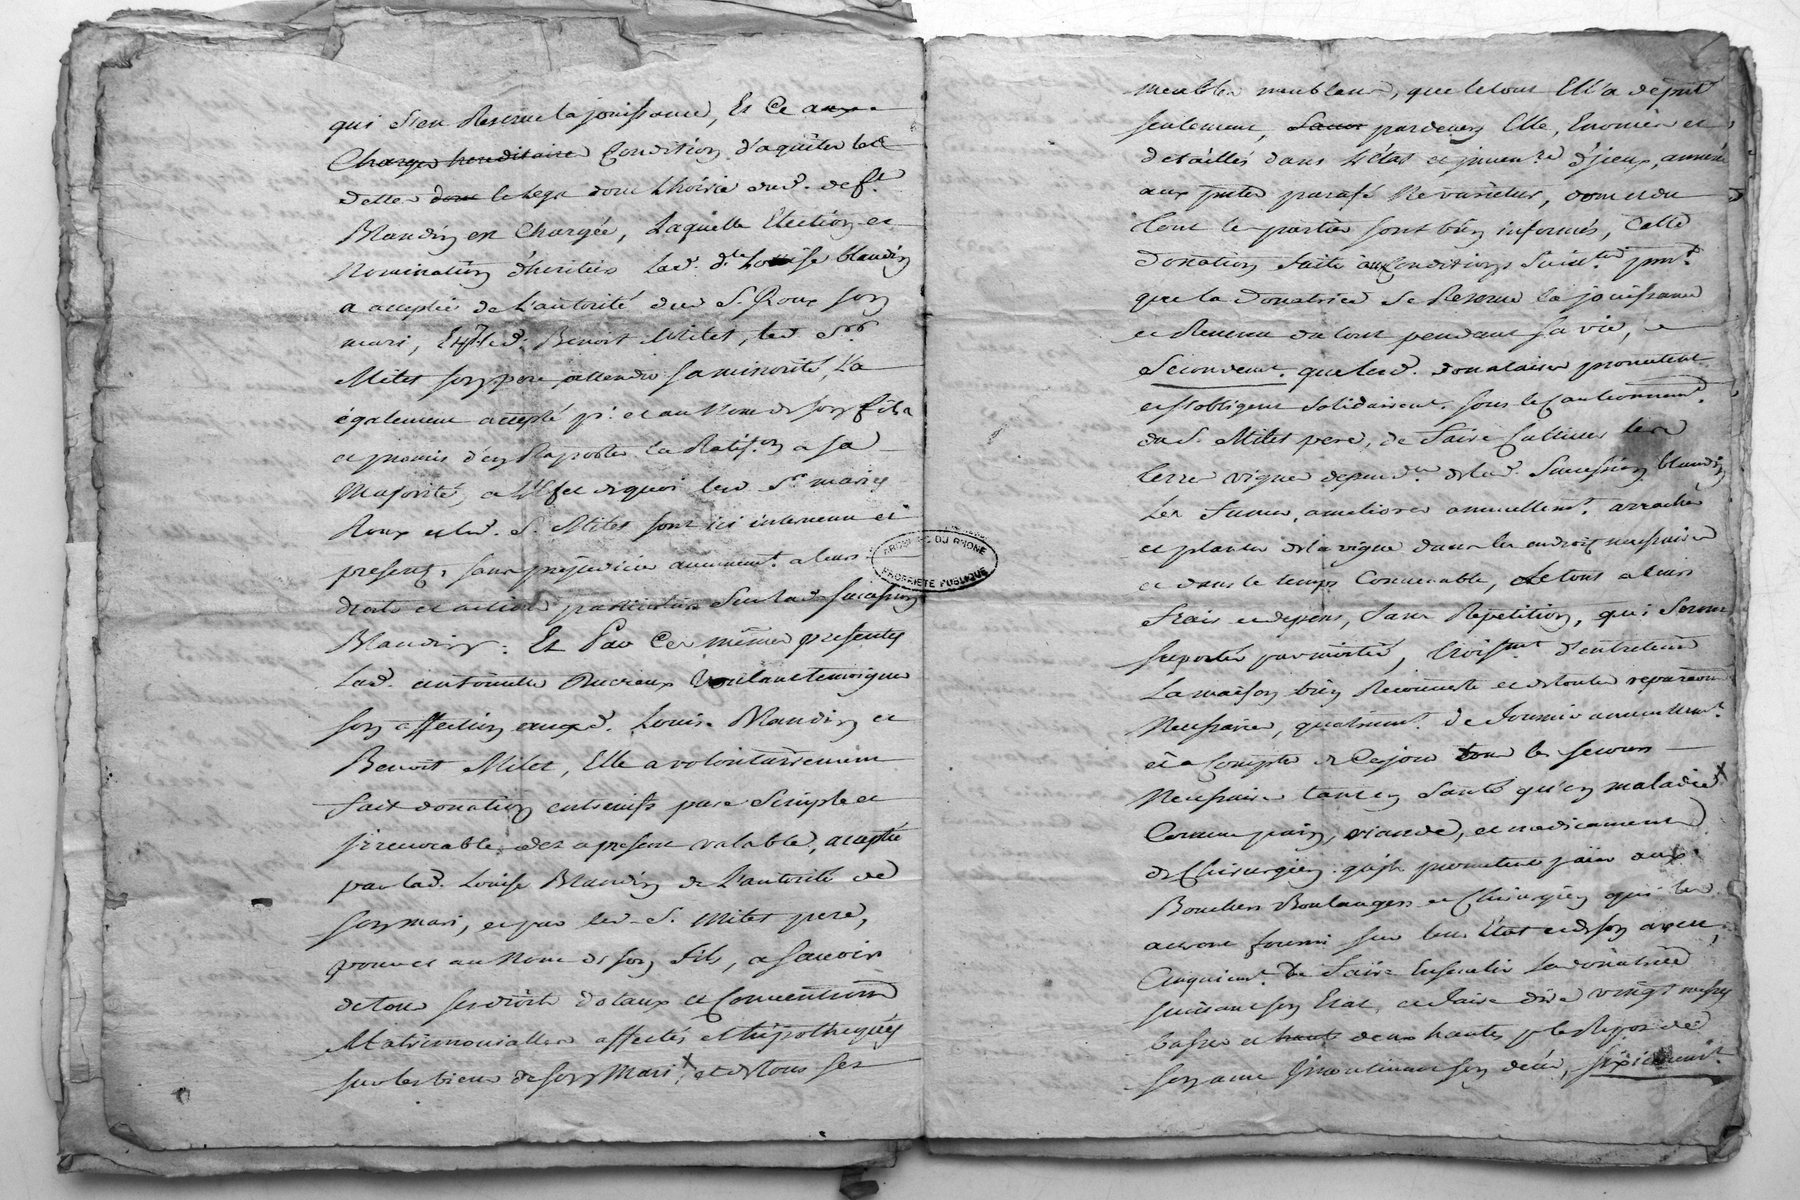 qui s'en Reserve la jouissance, Et Ce aux
Charges hereditaire Condition d'aquiter les
dettes dont le legs dont l'hoirie dud. deft
Blandin est Chargée, Laquelle Election et
Nomination d'heritiers lad. dlle Louise blandin
a acceptée de L'autorité dud S. Roux son
mari, Et led. Benoit Milet, led. Sr.
Milet son pere attendu sa minorité, L'a
également accepté pr. et au Nom de son fils
et promis d'en Raporter la Ratifon a sa
Majorité, a l'effet de quoi led Sr mariés
Roux et led. S. Milet sont ici intervenu et
present, sans prejudice aucunemt. a leurs
droits et action particuliers Sur lad. succession
Blandin. Et Par Ces mêmes presentes
Lad. antoinette voulant temoigner
son affection auxd. Louise Blandin et
Benoit Milet, Elle a volontairement
fait donation entrevifs pure Simple et
irrevocable des a present valable, acceptée
par lad. Louise Blandin de L'autorité de
son mari, et par led. S. Milet pere,
pour et au Nom de son fils, a savoir
de tous ses droits dotaux et Conventions
Matrimonialles affectés et hipothequés
sur les biens de son Mari x, et de tous ses
meubles meublans, que le tout Ell'a dejmt
seulement, pardevers Elle, Enoncés et
detaillés dans L'état et invenre d'jceux, annexé
aux pntes parafé Ne varietur, dont et du
tout les parties sont bien informés, Cette
Donation faite aux Conditions Suivtes pmt
que la Donatrice Se Reserve la jouissance
et Revenu du tout pendant sa vie,
Secondemt. que lesd. donataires promettent
et s'obligent Solidairemt. sous le Cautionnemt.
du S. Milet pere, de faire Cultiver les
terres vignes dependtes de lad. Succession blandin
Les fumer, ameliorer annuellemt. arracher
et planter de la vigne dans les endroits necessaires
et dans le temps Convenable, Le tout a leurs
frais et depens, sans Repetition, qui seront
suportés par moitié, troismt d'entretenir
La maison bien Recouverte et de toutes reparations
Necessaires, quatrimt. de fournir annuellemt.
et a Compter de Ce jour tous les secours
Necessaires tant en Santé qu'en maladie x
Comme pain, viande, et medicament
de Chirurgien qu'ils promettent païer aux
Bouchers Boulangers et Chirurgien qui les
auront fourni sur leur Etat et de son aveu,
Cinquiemt. de faire Ensevelir la donatrice
suivant son Etat, et faire dire vingt messes
basses et haute deux hautes pr le Repos de
son ame son décès, sixiemt.
ARCHIVES DU RHONE
PROPRIETE PUBLIQUE